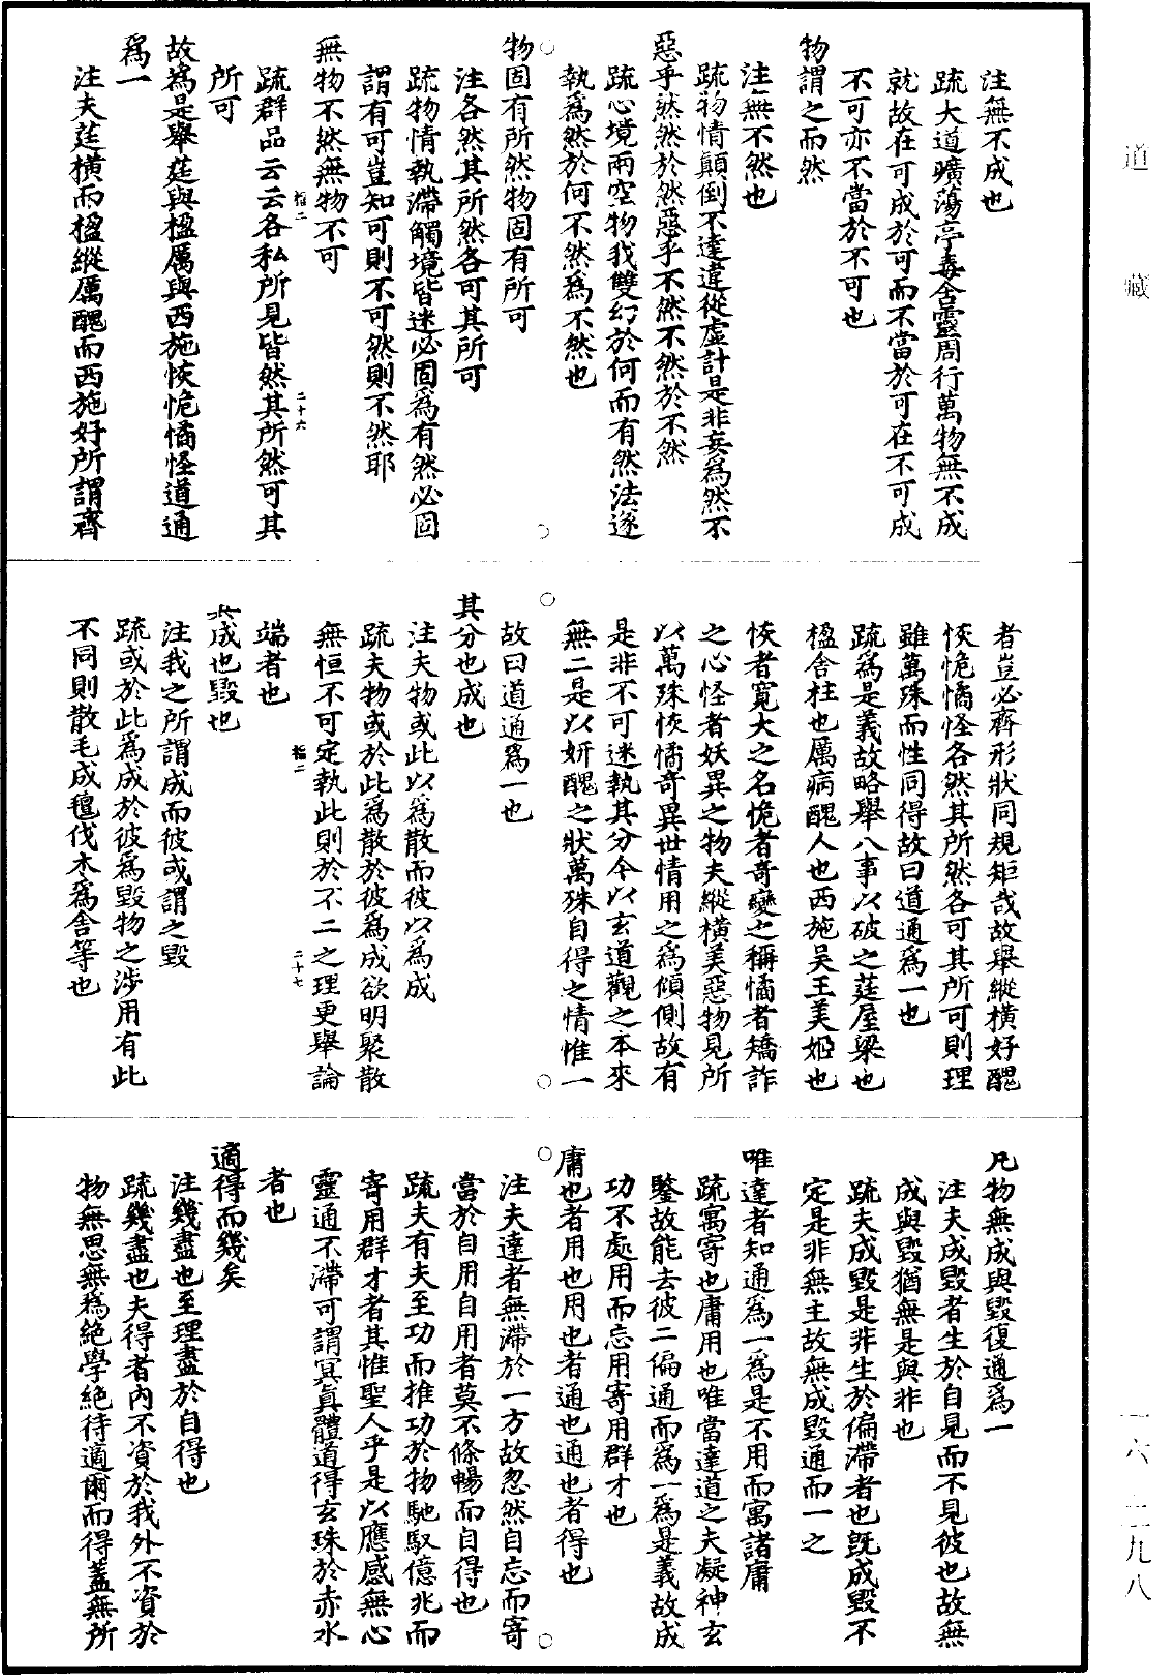 道藏
注無不成也
疏大道曠蕩亭毒含靈周行萬物無不成
就故在可成於可而不當於可在不可成
不可亦不當於不可也
物謂之而然
注無不然也
疏物情顛倒不達違從虛計是非妄爲然不
惡乎然然於然惡乎不然不然於不然
疏心境兩空物我雙幻於何而有然法遂
執爲然於何不然爲不然也
物固有所然物固有所可
注各然其所然各可其所可
疏物情執滯觸境皆迷必固爲有然必固
謂有可豈知可則不可然則不然耶
無物不然無物不可
指二 二十六
疏群品云云各私所見皆然其所然可其
所可
故爲是舉莛與楹厲與西施恢恑憰怪道通
爲一
注夫莛橫而楹縱厲醜而西施好所謂齊
者豈必齊形狀同規矩哉故舉縱橫好醜
恢恑憰怪各然其所然各可其所可則理
雖萬殊而性同得故曰道通爲一也
疏爲是義故略舉八事以破之莛屋梁也
楹舍柱也厲病醜人也西施吳王美姬也
恢者寬大之名恑者奇變之稱憰者矯詐
之心怪者妖異之物夫縱橫美惡物見所
以萬殊恢憰奇異世情用之爲傾側故有
是非不可迷執其分今以玄道觀之本來
無二是以妍醜之狀萬殊自得之情惟一
故曰道通爲一也
其分也成也
注夫物或此以爲散而彼以爲成
疏夫物或於此爲散於彼爲成欲明聚散
無恒不可定執此則於不二之理更舉論
指二 二十七
端者也
其成也毀也
注我之所謂成而彼或謂之毀
疏或於此爲成於彼爲毀物之涉用有此
不同則散毛成氊伐木爲舍等也
凡物無成與毀復通爲一
注夫成毀者生於自見而不見彼也故無
成與毀猶無是與非也
疏夫成毀是非生於偏滯者也既成毀不
定是非無主故無成毀通而一之
唯達者知通爲一爲是不用而寓諸庸
疏寓寄也庸用也唯當達道之夫凝神玄
鑒故能去彼二偏通而爲一爲是義故成
功不處用而忘用寄用群才也
庸也者用也用也者通也通也者得也
注夫達者無滯於一方故忽然自忘而寄
當於自用自用者莫不條暢而自得也
疏夫有夫至功而推功於物馳馭億兆而
寄用群才者其惟聖人乎是以應感無心
靈通不滯可謂冥真體道得玄珠於赤水
者也
適得而幾矣
注幾盡也至理盡於自得也
疏幾盡也夫得者內不資於我外不資於
物無思無爲絕學絕待適爾而得蓋無所
一六—二九八